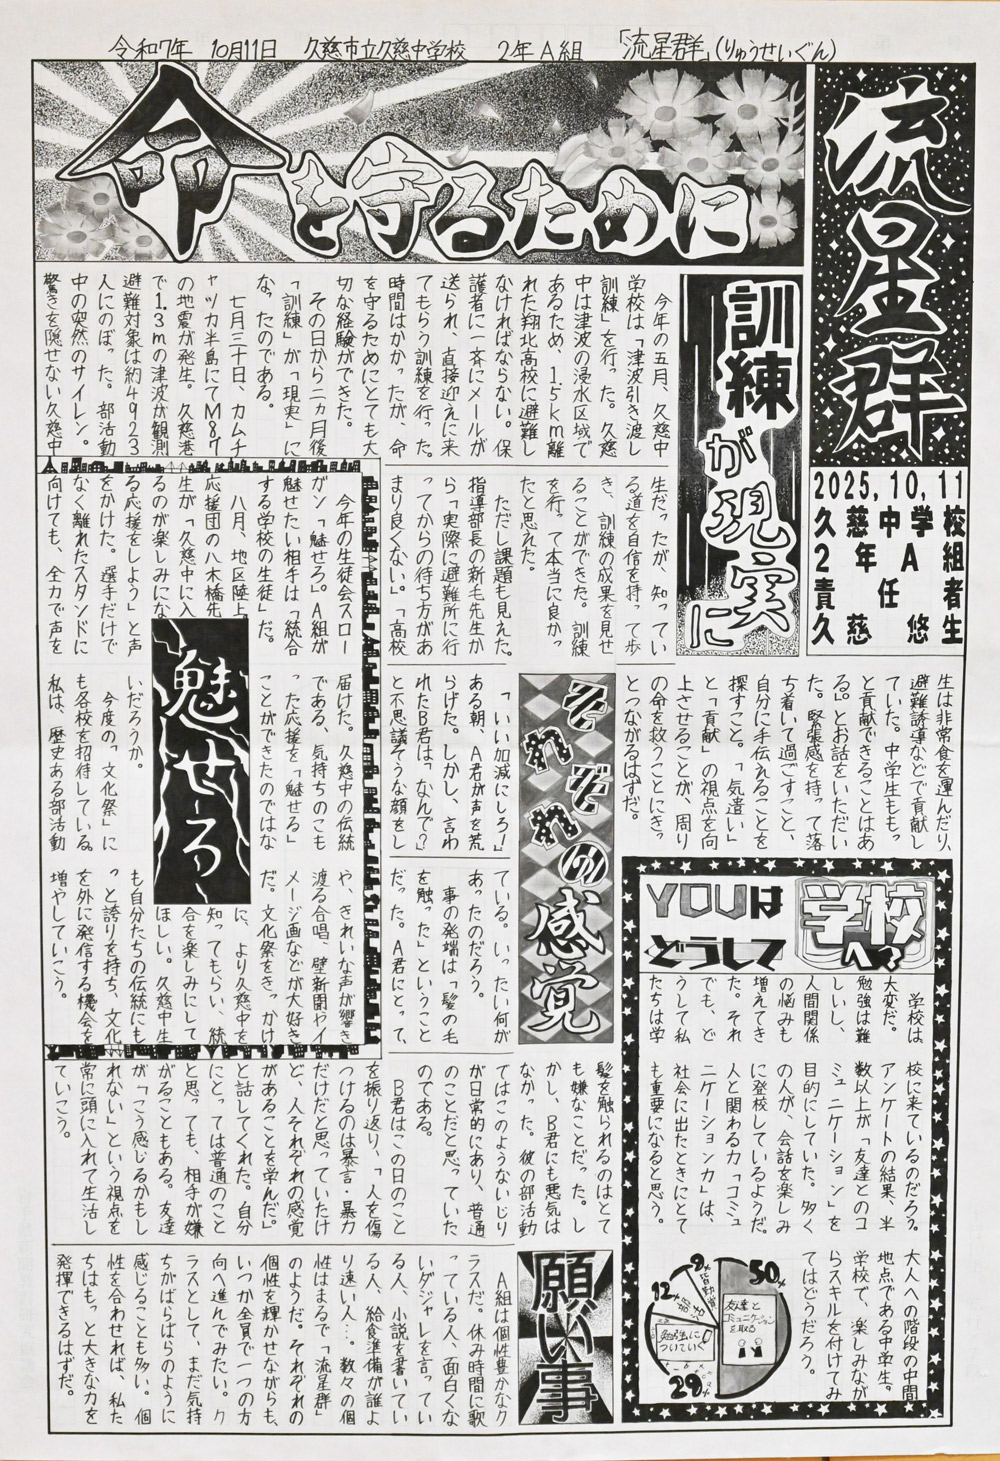 令和7年 10月11日 久慈市立久慈中学校 2年A組 「流星群」(りゅうせいぐん)
流星群
2025,10,11
久慈中学校
2年A組
責任者
久慈悠生
命を守るために
訓練が現実に
今年の五月、久慈中
学校は「津波引き渡し
訓練」を行った。久慈
中は津波の浸水区域で
あるため、1.5km離
れた翔北高校に避難し
なければならない。保
護者に一斉にメールが
送られ、直接迎えに来
てもらう訓練を行った。
時間はかかったが、命
を守るためにとても大
切な経験ができた。
その日から二ヵ月後
「訓練」が「現実」に
なったのである。
七月三十日、カムチ
ャツカ半島にてM8.7
の地震が発生。久慈港
で1.3mの津波が観測
避難対象は約4923
人にのぼった。部活動
中の突然のサイレン。
驚きを隠せない久慈中
生だったが、知ってい
る道を自信を持って歩
き、訓練の成果を見せ
ることができた。訓練
を行って本当に良かっ
たと思えた。
ただし課題も見えた。
指導部長の新毛先生か
ら「実際に避難所に行
ってからの待ち方があ
まり良くない。」「高校
生は非常食を運んだり、
避難誘導などで貢献し
ていた。中学生ももっ
と貢献できることはあ
る。」とお話をいただい
た。緊張感を持って落
ち着いて過ごすこと、
自分に手伝えることを
探すこと。「気遣い」
と「貢献」の視点を向
上させることが、周り
の命を救うことにきっ
とつながるはずだ。
魅せろ
今年の生徒会スロー
ガン「魅せろ」。A組が
魅せたい相手は「統合
する学校の生徒」だ。
八月、地区陸上。
応援団の八木橋先
生が「久慈中に入
るのが楽しみにな
る応援をしよう」と声
をかけた。選手だけで
なく離れたスタンドに
向けても、全力で声を
届けた。久慈中の伝統
である、気持ちのこも
った応援を「魅せる」
ことができたのではな
いだろうか。
今度の「文化祭」に
も各校を招待している。
私は、歴史ある部活動
や、きれいな声が響き
渡る合唱、壁新聞やイ
メージ画などが大好き
だ。文化祭をきっかけ
に、より久慈中を
知ってもらい、統
合を楽しみにして
ほしい。久慈中生
も自分たちの伝統にも
っと誇りを持ち、文化
を外に発信する機会を
増やしていこう。
それぞれの感覚
「いい加減にしろ!」
ある朝、A君が声を荒
らげた。しかし、言わ
れたB君は「なんで?」
と不思議そうな顔をし
ている。いったい何が
あったのだろう。
事の発端は「髪の毛
を触った」ということ
だった。A君にとって、
髪を触られるのはとて
も嫌なことだった。し
かし、B君にも悪気は
なかった。彼の部活動
ではこのようないじり
が日常的にあり、普通
のことだと思っていた
のである。
B君はこの日のこと
を振り返り、「人を傷
つけるのは暴言・暴力
だけだと思っていたけ
ど、人それぞれの感覚
があることを学んだ。」
と話してくれた。自分
にとっては普通のこと
と思っても、相手が嫌
がることもある。友達
が「こう感じるかもし
れない」という視点を
常に頭に入れて生活し
ていこう。
YOUは
どうして
学校へ?
学校は
大変だ。
勉強は難
しいし、
人間関係
の悩みも
増えてき
た。それ
でも、ど
うして私
たちは学
校に来ているのだろう。
アンケートの結果、半
数以上が「友達とのコ
ミュニケーション」を
目的にしていた。多く
の人が、会話を楽しみ
に登校しているようだ。
人と関わる力「コミュ
ニケーション力」は、
社会に出たときにとて
も重要になると思う。
大人への階段の中間
地点である中学生。
学校で、楽しみなが
らスキルを付けてみ
てはどうだろう。
50%
友達と
コミュニケーション
を取る
29%
勉強に
ついていく
12%
部活
9%
願い事
A組は個性豊かなク
ラスだ。休み時間に歌
っている人、面白くな
いダジャレを言ってい
る人、小説を書いてい
る人、給食準備が誰よ
り速い人…。数々の個
性はまるで「流星群」
のようだ。それぞれの
個性を輝かせながらも、
いつか全員で一つの方
向へ進んでみたい。ク
ラスとして、まだ気持
ちがばらばらのように
感じることも多い。個
性を合わせれば、私た
ちはもっと大きな力を
発揮できるはずだ。